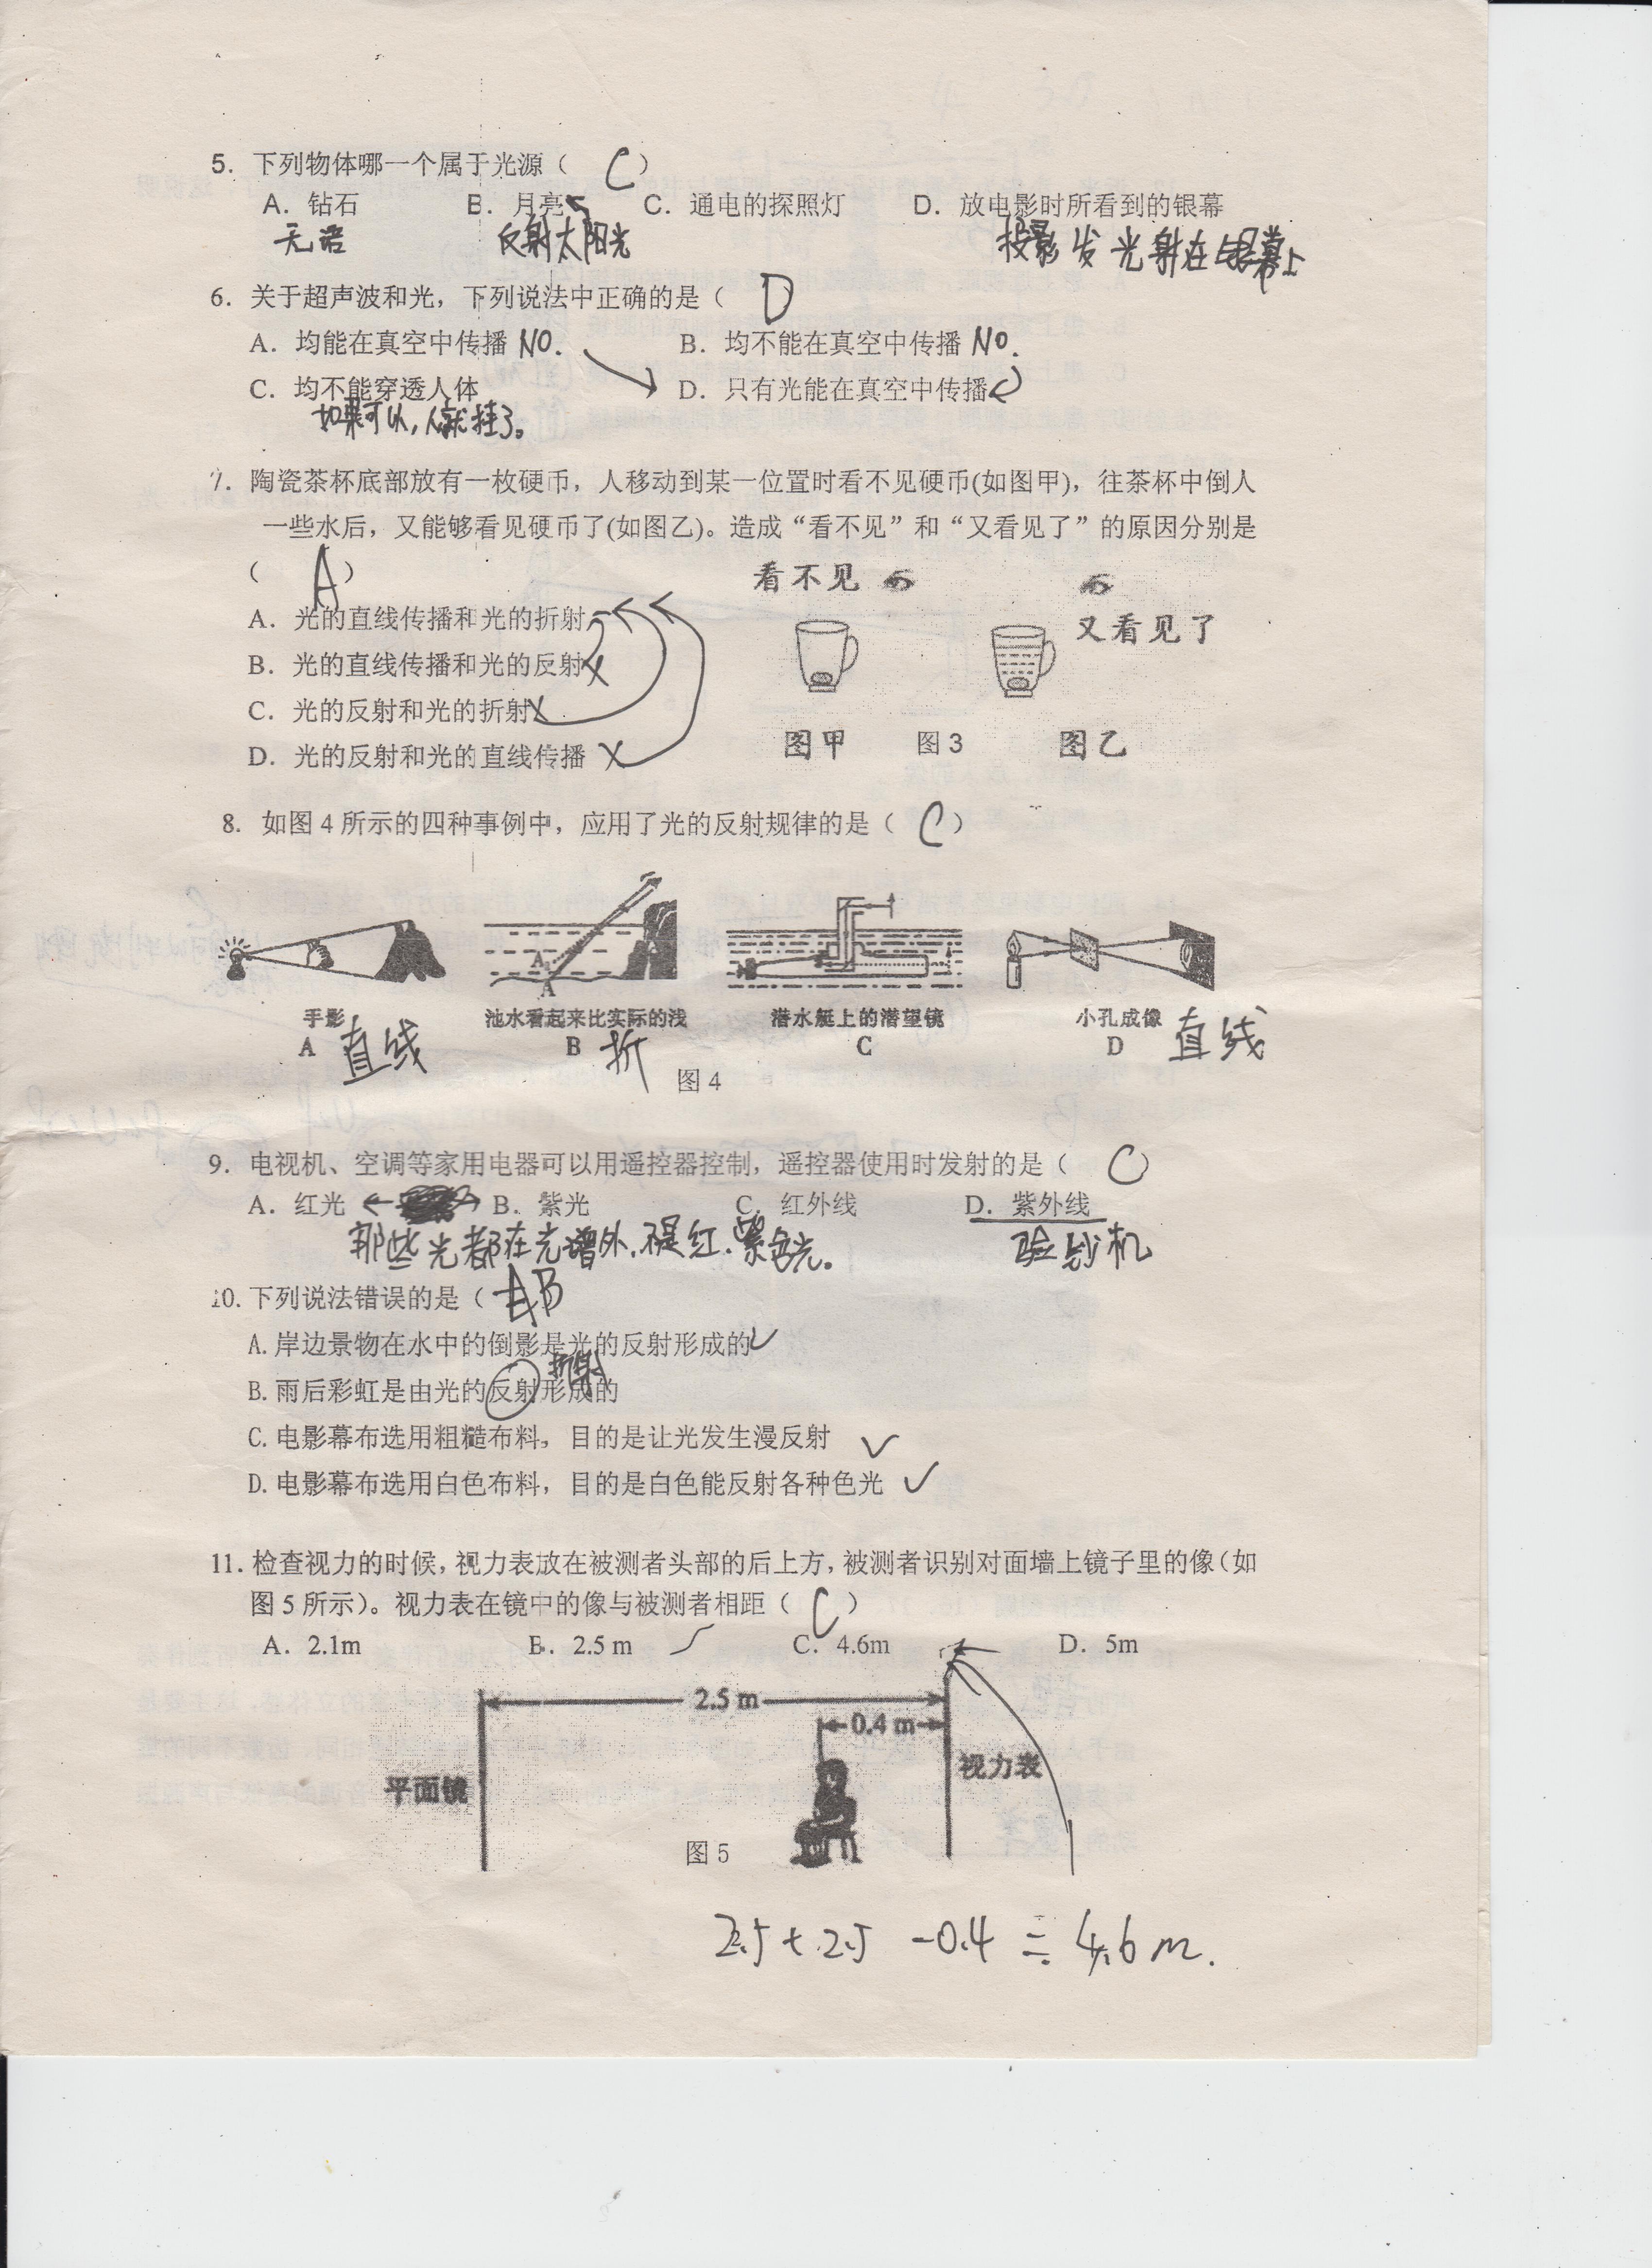 5. 下列物体哪一个属于光源（ C ）
A. 钻石 B. 月亮 C. 通电的探照灯 D. 放电影时所看到的银幕
无语 反射太阳光 投影发光射在银幕上
6. 关于超声波和光，下列说法中正确的是（ D
A. 均能在真空中传播 NO. B. 均不能在真空中传播 NO.
C. 均不能穿透人体 D. 只有光能在真空中传播
如果可以，人就挂了。
7. 陶瓷茶杯底部放有一枚硬币，人移动到某一位置时看不见硬币(如图甲)，往茶杯中倒人
一些水后，又能够看见硬币了(如图乙)。造成“看不见”和“又看见了”的原因分别是
（ A ）
看不见
又看见了
A. 光的直线传播和光的折射
B. 光的直线传播和光的反射 X
C. 光的反射和光的折射 X
D. 光的反射和光的直线传播 X
图甲 图3 图乙
8. 如图4所示的四种事例中，应用了光的反射规律的是（ C ）
A
A
手影 池水看起来比实际的浅 潜水艇上的潜望镜 小孔成像
A 直线 B 折 C D 直线
图4
9. 电视机、空调等家用电器可以用遥控器控制，遥控器使用时发射的是（ C
A. 红光 B. 紫光 C. 红外线 D. 紫外线
那些光都在光谱外，不是红、紫色光。 验钞机
10. 下列说法错误的是（ B
A. 岸边景物在水中的倒影是光的反射形成的 ✓
折射
B. 雨后彩虹是由光的反射形成的
C. 电影幕布选用粗糙布料，目的是让光发生漫反射 ✓
D. 电影幕布选用白色布料，目的是白色能反射各种色光 ✓
11. 检查视力的时候，视力表放在被测者头部的后上方，被测者识别对面墙上镜子里的像（如
图5所示）。视力表在镜中的像与被测者相距（ C ）
A. 2.1m B. 2.5 m C. 4.6m D. 5m
2.5 m
0.4 m
平面镜 视力表
图5
2.5 + 2.5 - 0.4 = 4.6 m.